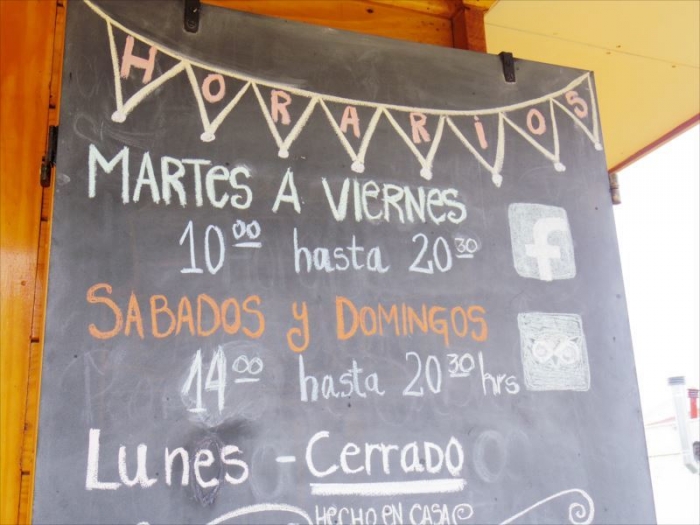 HORARIOS
MARTES A VIERNES
10⁰⁰ hasta 20³⁰
SABADOS y DOMINGOS
14⁰⁰ hasta 20³⁰ hrs
LUNES - CERRADO
HECHO EN CASA